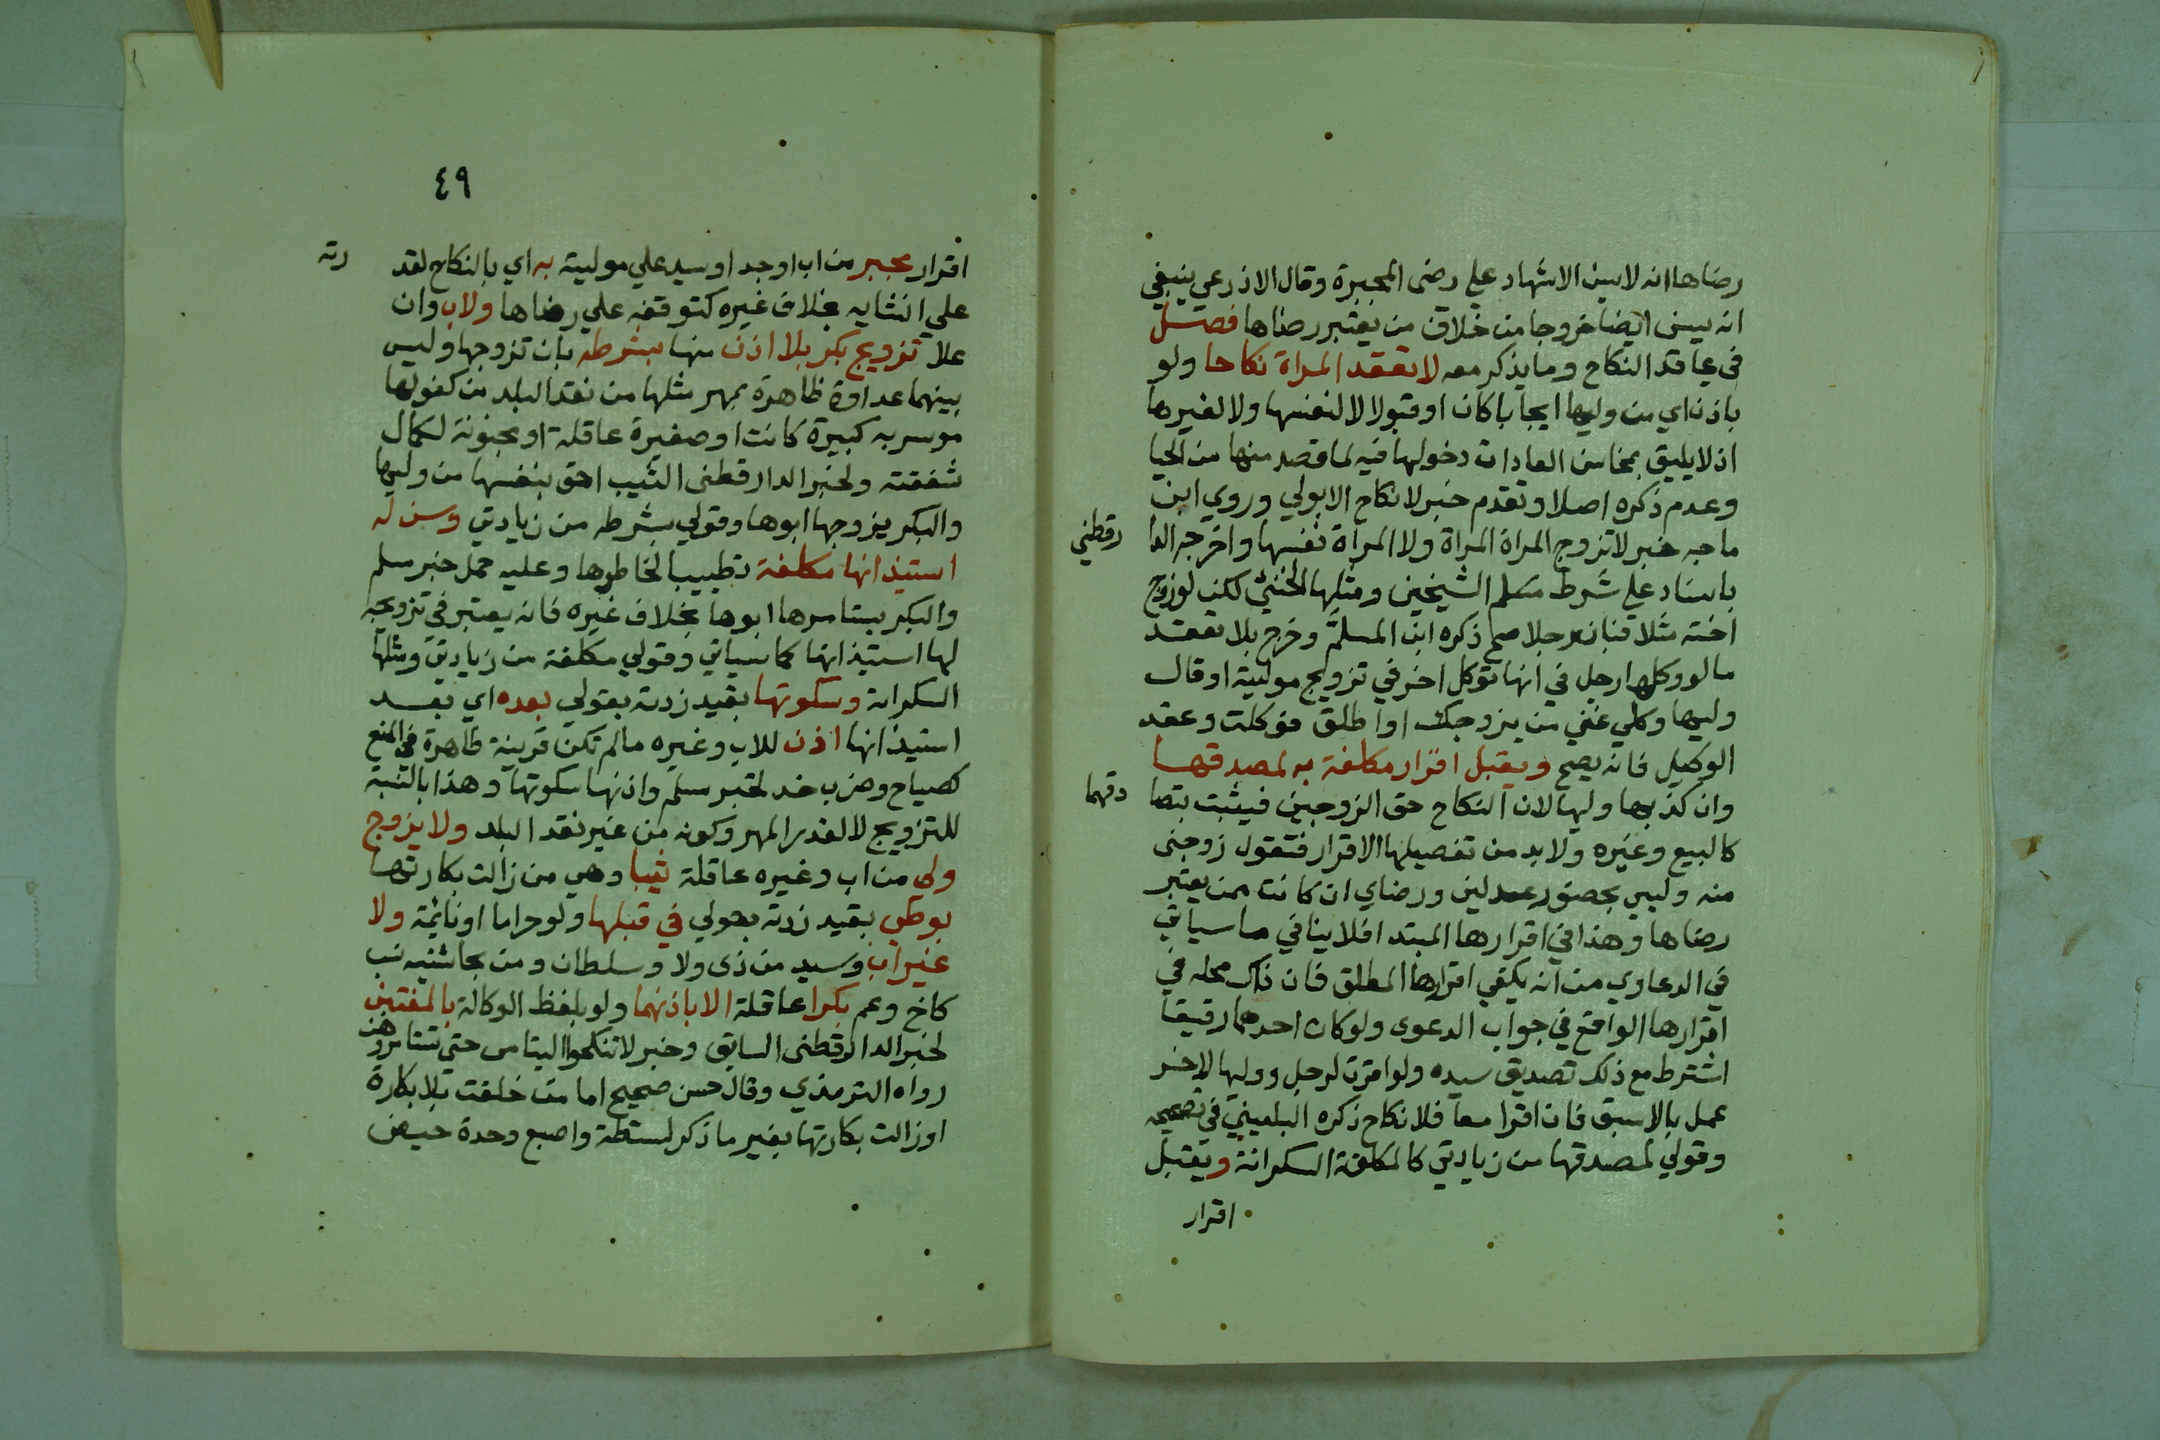 رضاها انه لا يسن الاشهاد علي رضى المجبرة وقال الاذرعي ينبغي
انه يسن ايضا خروجا من خلاف من يعتبر رضاها فصل
في عاقد النكاح وما يذكر معه لا تعقد المراة نكاحا ولو
باذن اي من وليها ايجابا كان او قبولا لا لنفسها ولا لغيرها
اذ لا يليق بمحاسن العادات دخولها فيه لما قصد منها من الحيا
وعدم ذكره اصلا وتقدم خبر لا نكاح الا بولي وروي ابن
ماجه خبر لا تزوج المراة المراة ولا المراة نفسها واخرجه الدا رقطني
باسناد علي شرط الشيخين ومثلها الخنثي لكن لو زوج
اخته مثلا فبان رجلا صح ذكره ابن المسلم وخرج بلا تعقد
ما لو وكلها رجل في انها توكل اخر في تزويج موليته او قال
وليها وكلي عني من يزوجك او اطلق فوكلت وعقد
الوكيل فانه يصح ويقبل اقرار مكلفة به لمصدقها
وان كذبها وليها لان النكاح حق الزوجين فيثبت بتصا دقهما
كالبيع وغيره ولا بد من تفصيلها الاقرار فتقول زوجني
منه وليي بحضور عدلين ورضاي ان كانت ممن يعتبر
رضاها وهذا في اقرارها المبتدا فلا ينافي ما سياتي
في الدعاوي من انه يكفي اقرارها المطلق فان ذاك محله في
اقرارها الواقع في جواب الدعوى ولو كان احدهما رقيقا
اشترط مع ذلك تصديق سيده ولو اقرت لرجل ووليها لاخر
عمل بالاسبق فان اقرا معا فلا نكاح ذكره البلقيني في تصحيحه
وقولي لمصدقها من زيادتي كالمكلفة السكرانة ويقبل
اقرار
٤٩
اقرار مجبر من اب او جد او سيد علي موليته به اي بالنكاح لقد رته
علي انشايه بخلاف غيره كتوقفه علي رضاها ولاب وان
علا تزويج بكر بلا اذن منها بشرطه بان تزوجها وليس
بينهما عداوة ظاهرة بمهر مثلها من نقد البلد من كفو لها
موسر به كبيرة كانت او صغيرة عاقلة او مجنونة لكمال
شفقته ولخبر الدارقطني الثيب احق بنفسها من وليها
والبكر يزوجها ابوها وقولي بشرطه من زيادتي وسن له
استيذانها مكلفة تطييبا لخاطرها وعليه حمل خبر مسلم
والبكر يستامرها ابوها بخلاف غيره فانه يعتبر في تزويجه
لها استيذانها كما سياتي وقولي مكلفة من زيادتي ومثلها
السكرانة وسكوتها بقيد زدته بقولي بعده اي بعد
استيذانها اذن للاب وغيره ما لم تكن قرينة ظاهرة في المنع
كصياح وضرب خد لخبر مسلم واذنها سكوتها وهذا بالنسبة
للتزويج لا لقدر المهر وكونه من غير نقد البلد ولا يزوج
ولي من اب وغيره عاقلة ثيبا وهي من زالت بكارتها
بوطي بقيد زدته بقولي في قبلها ولو حراما او نايمة ولا
غير اب وسيد من ذي ولا وسلطان ومن بحاشية نسب
كاخ وعم بكرا عاقلة الا باذنهما ولو بلفظ الوكالة بالغتين
لخبر الدارقطني السابق وخبر لا تنكحوا اليتامى حتي تستامروهن
رواه الترمذي وقال حسن صحيح اما من خلقت بلا بكارة
او زالت بكارتها بغير ما ذكر لسقطة واصبع وحدة حيض